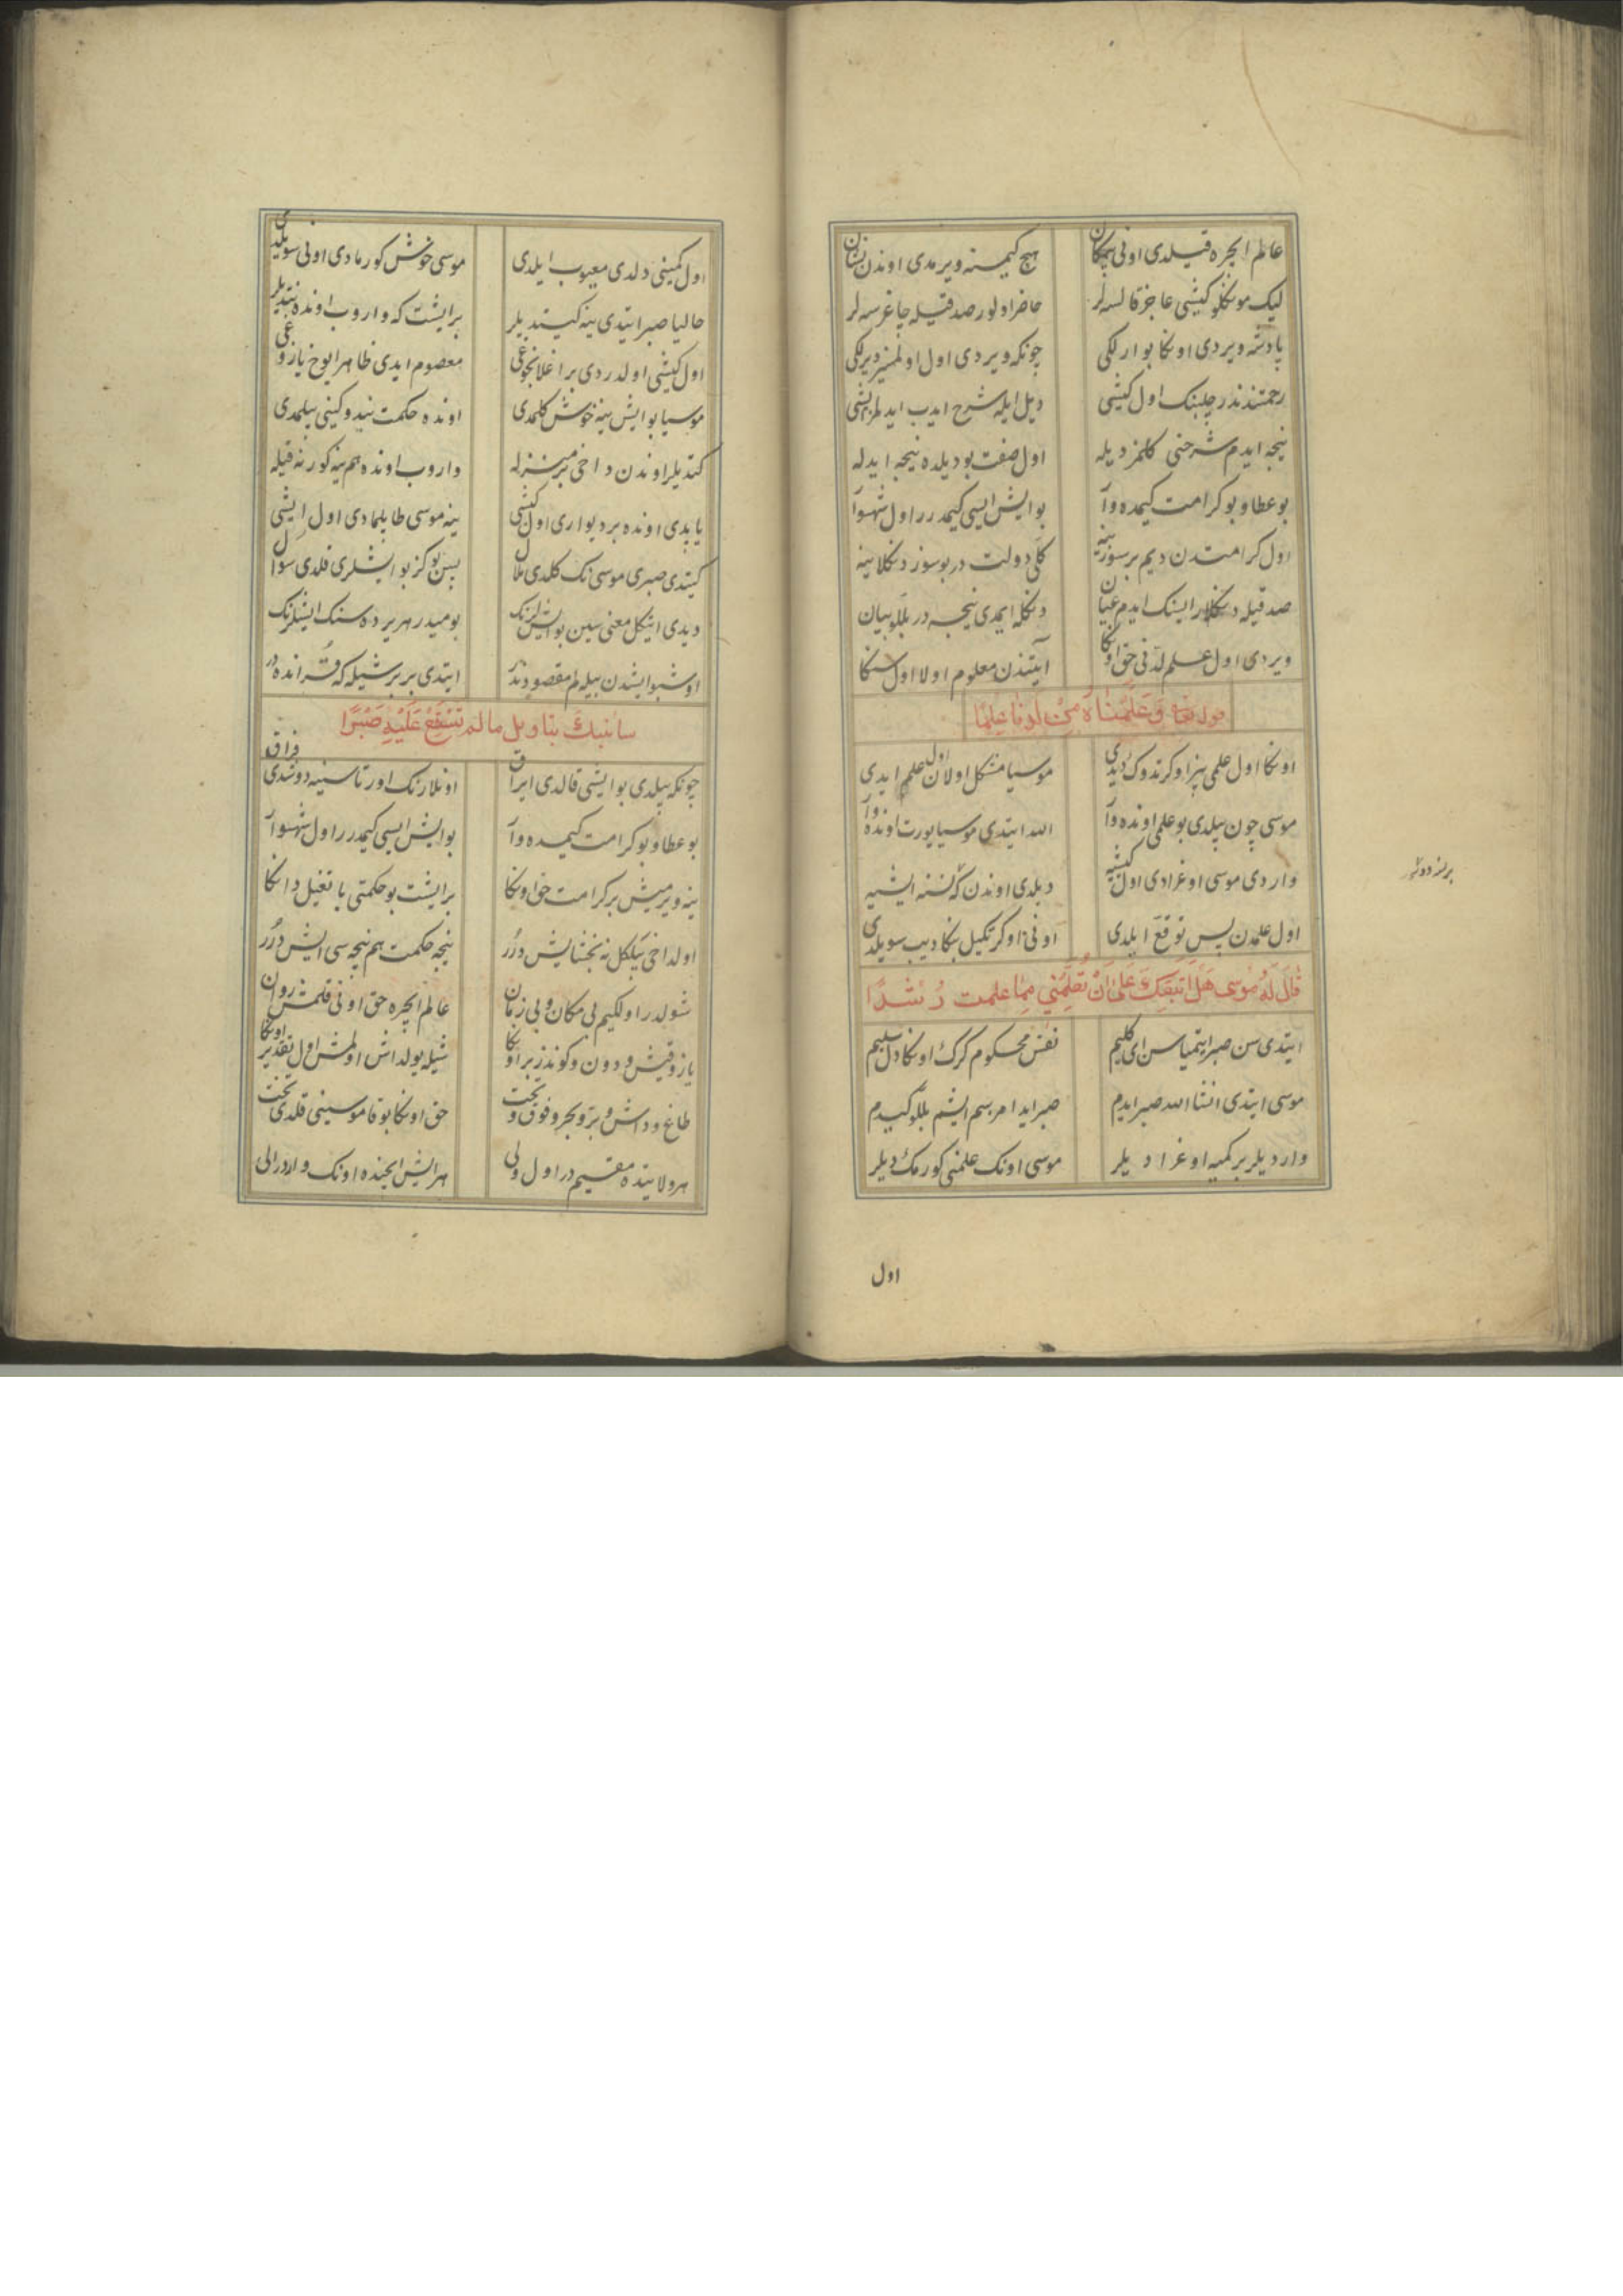 عالم ایچره قیلدی اونی بی مکان هیچ کیمسنه ویرمدی اوندن نشان
لیک مونکلو کیشی عاجز قالسه لر حاضر اولور صدقیله چاغرسه لر
پادشه ویردی اونکا بو ارلکی چونکه ویردی اول اولمز دیرلکی
رحمتندندر چلبنک اول کیشی دیل ایله شرح ایدب ایدلمز ایشی
نیجه ایدم شرحنی کلمز دیله اول صفت بو دیلده نیجه ایدله
بو عطا و بو کرامت کیمده وار بو ایش ایسی کیمدر اول شهسوار
اول کرامتدن دیم بر سوز ینه کلی دولت در بو سوز دنکلاینه
صدقیله دنکلار ایسنک ایدم عیان دنکله ایمدی نیجه در بللو بیان
ویردی اول علم لدنی حق اونکا آیتندن معلوم اولا اول سنکا
قوله تعالی وَعَلَّمْنَاهُ مِنْ لَدُنَّا عِلْمًا
اونکا اول علمی بز اوکرتدوک دیدی موسیا مشکل اولان اول علم ایدی
موسی چون بیلدی بو علمی اونده وار الله ایتدی موسیا یورت اونده وار
واردی موسی اوغرادی اول کیشیه دیلدی اوندن که نسنه ایشیه
اول علمدن پس توقع ایلدی اونی اوکرتکیل بنکا دیب سویلدی
قَالَ لَهُ مُوسَى هَلْ اَتَّبِعُكَ عَلَى اَنْ تُعَلِّمَنِي مِمَّا علمت رُشْدًا
ایتدی سن صبر ایتمیاسن ای کلیم نفس محکوم کرک اونکا دل سلیم
موسی ایتدی انشا الله صبر ایدم صبر ایدامرسم ایشم بللو کیدم
واردیلر بر کمیه اوغرادیلر موسی اونک علمنی کورمک دیلر
اول
اول کمینی دلدی معیوب ایلدی موسی خوش کورمادی اونی سویلدی
حالیا صبر ایتدی ینه کیتدیلر بر ایشت که واروب اونده نیتدیلر
اول کیشی اولدردی بر اغلانجوغی معصوم ایدی ظاهرا یوخ یازوغی
موسیا بو ایش ینه خوش کلمدی اونده حکمت نیدوکینی بیلمدی
کتدیلر اوندن داخی بر منزله واروب اونده هم ینه کور نه قیله
یاپدی اونده بر دیواری اول کیشی ینه موسی طابلمادی اول ایشی
کیتدی صبری موسی نک کلدی ملال پس بو کز بو ایشلری قلدی سوال
دیدی ایتکل معنی سین بو ایشلرنک بو میدر هر یرده سنک ایشلرنک
اوشبو ایشدن بیله لم مقصود ندر ایتدی بر بر شیله که قرانده در
سانبئك بتاويل مالم تَسْتَطِعْ عَلَيْهِ صَبْرًا
چونکه بیلدی بو ایشی قالدی ایراق اونلارنک اورتاسینه دوشدی فراق
بو عطا و بو کرامت کیمده وار بو ایش ایسی کیمدر اول شهسوار
ینه ویرمیش بر کرامت حق اونکا بر ایشت بو حکمتی یا تغیل دانکا
اول داخی بیلکل نه بخشایش دررر نیجه حکمت هم نیجه سی ایش درر
شولدر اولکیم بی مکان و بی زمان عالم ایچره حق اونی قلمش روان
یاز و قیش و دون و کوندز بر اونکا شیله یولداش اولمش اول تقدیر اونکا
طاغ و داش و بر و بحر و فوق و تحت حق اونکا بو قاموسینی قلدی تخت
هر ولایتده مقیم در اول ولی هر ایش ایچنده اونک واردر الی